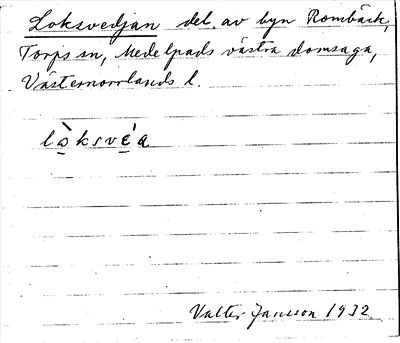 Loksvedjan del av byn Rombäck,
Torps sn, Medelpads västra domsaga,
Västernorrlands l.
lò̲ksvé̲a
Valter Jansson 1932